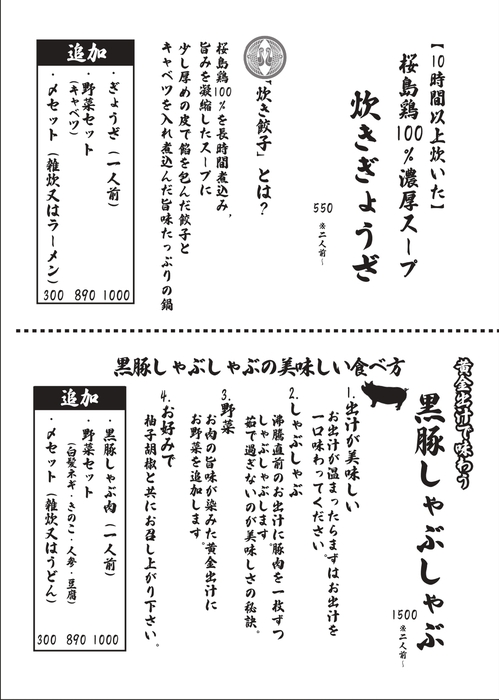 【10時間以上炊いた】
桜島鶏100％濃厚スープ
炊きぎょうざ
550
※二人前〜
「炊き餃子」とは？
桜島鶏100％を長時間煮込み、
旨みを凝縮したスープに
少し厚めの皮で餡を包んだ餃子と
キャベツを入れ煮込んだ旨味たっぷりの鍋
追加
・ぎょうざ（一人前）
1000
・野菜セット
（キャベツ）
890
・〆セット（雑炊又はラーメン）
300
黄金出汁で味わう
黒豚しゃぶしゃぶ
1500
※二人前〜
黒豚しゃぶしゃぶの美味しい食べ方
1.出汁が美味しい
お出汁が温まったらまずはお出汁を
一口味わってください。
2.しゃぶしゃぶ
沸騰直前のお出汁に豚肉を一枚ずつ
しゃぶしゃぶします。
茹で過ぎないのが美味しさの秘訣。
3.野菜
お肉の旨味が染みた黄金出汁に
お野菜を追加します。
4.お好みで
柚子胡椒と共にお召し上がり下さい。
追加
・黒豚しゃぶ肉（一人前）
1000
・野菜セット
（白髪ネギ・きのこ・人参・豆腐）
890
・〆セット（雑炊又はうどん）
300